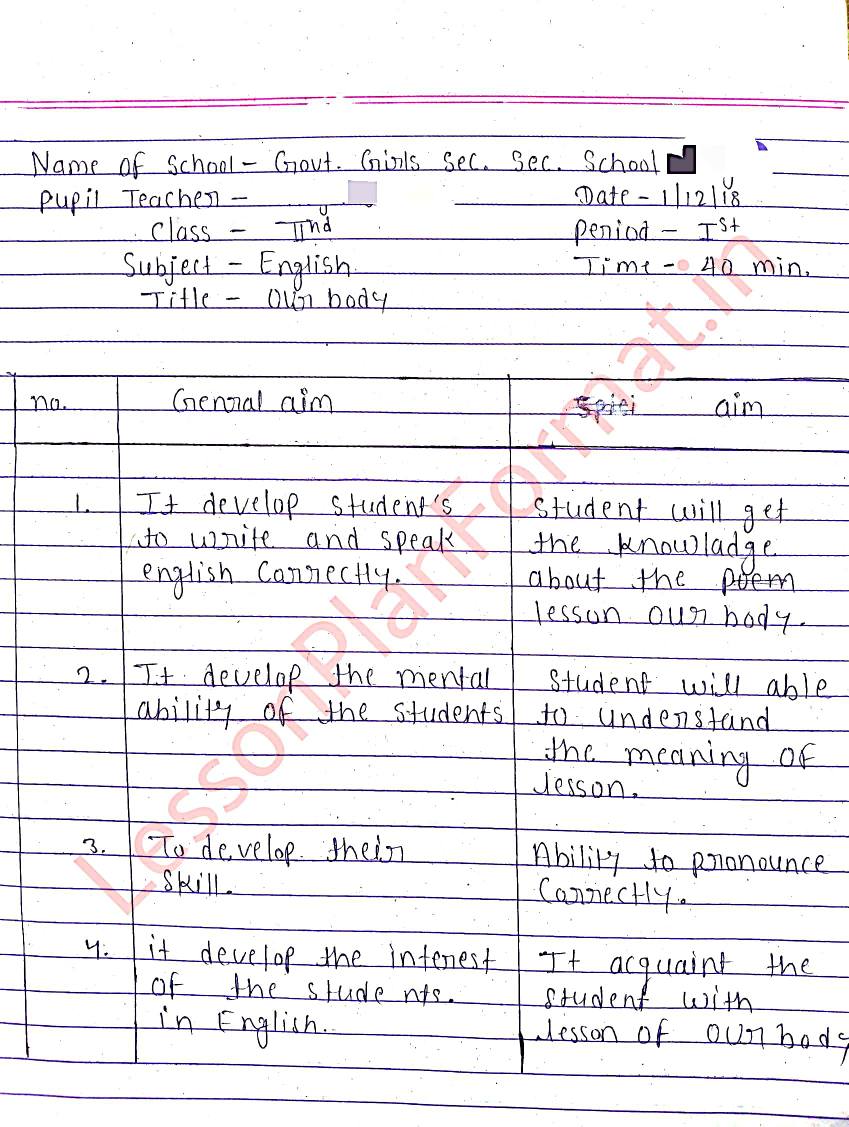 Name of School - Govt. Girls Sec. Sec. School
Pupil Teacher - Date - 1/12/18
Class - IInd Period - Ist
Subject - English Time - 40 min.
Title - Our body
no. Genral aim Spici aim
1. It develop student's Student will get
to write and speak the knowladge
english Correctly. about the poem
lesson our body.
2. It develop the mental Student will able
ability of the students to understand
the meaning of
lesson.
3. To develop their Ability to pronounce
Skill. Correctly.
4. it develop the interest It acquaint the
of the stude nts. student with
in English. lesson of our body
LessonPlanFormat.in